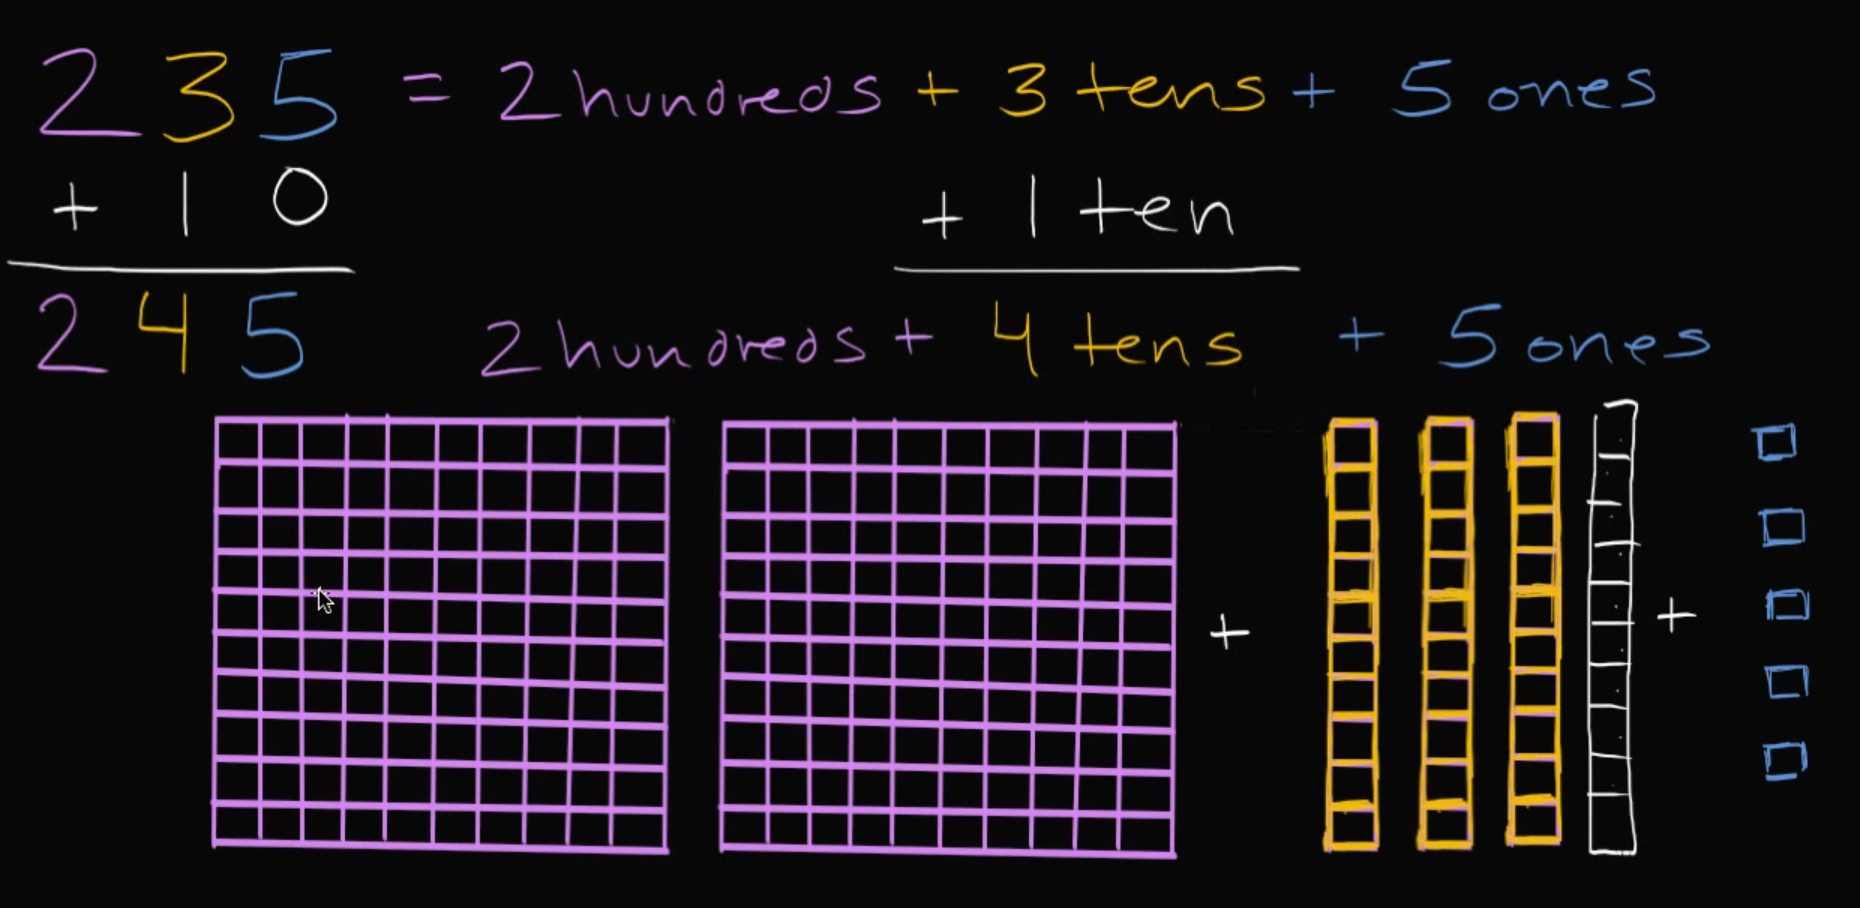 235 = 2 hundreds + 3 tens + 5 ones
+ 10 + 1 ten
245 2 hundreds + 4 tens + 5 ones
+ +